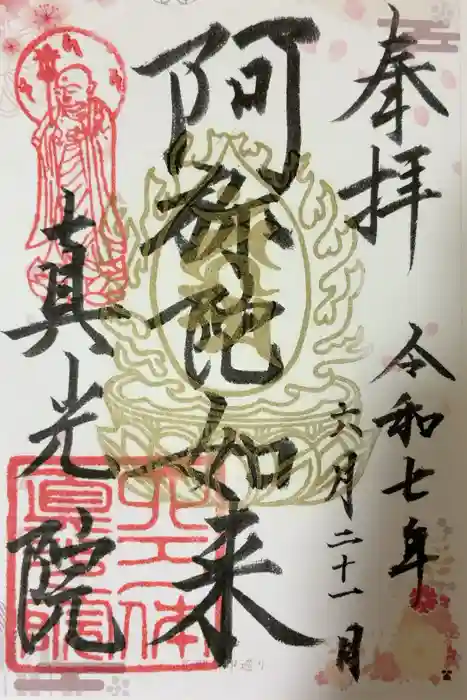 奉拝
令和七年
六月二十一月
阿弥陀如来
真光院